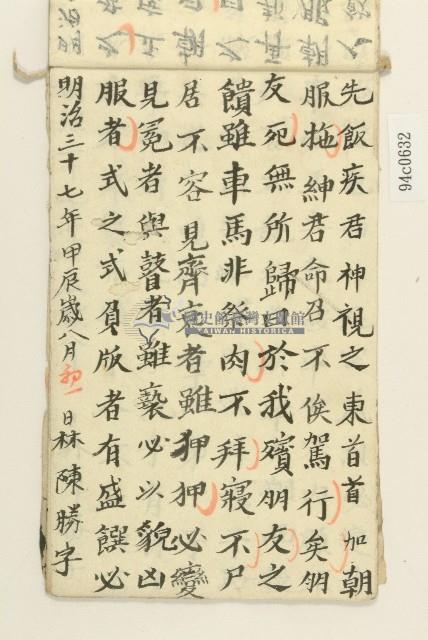 先飯疾君神視之東首首加朝
服拖紳君命召不俟駕行矣朋
友死無所歸曰於我殯朋友之
饋雖車馬非祭肉不拜寢不尸
居不容見齊衰者雖狎狎必變
見冕者與瞽者雖褻必以貌凶
服者式之式負版者有盛饌必
明治三十七年甲辰歲八月初一日林陳勝字
94c0632
國史館臺灣文獻館
TAIWAN HISTORICA